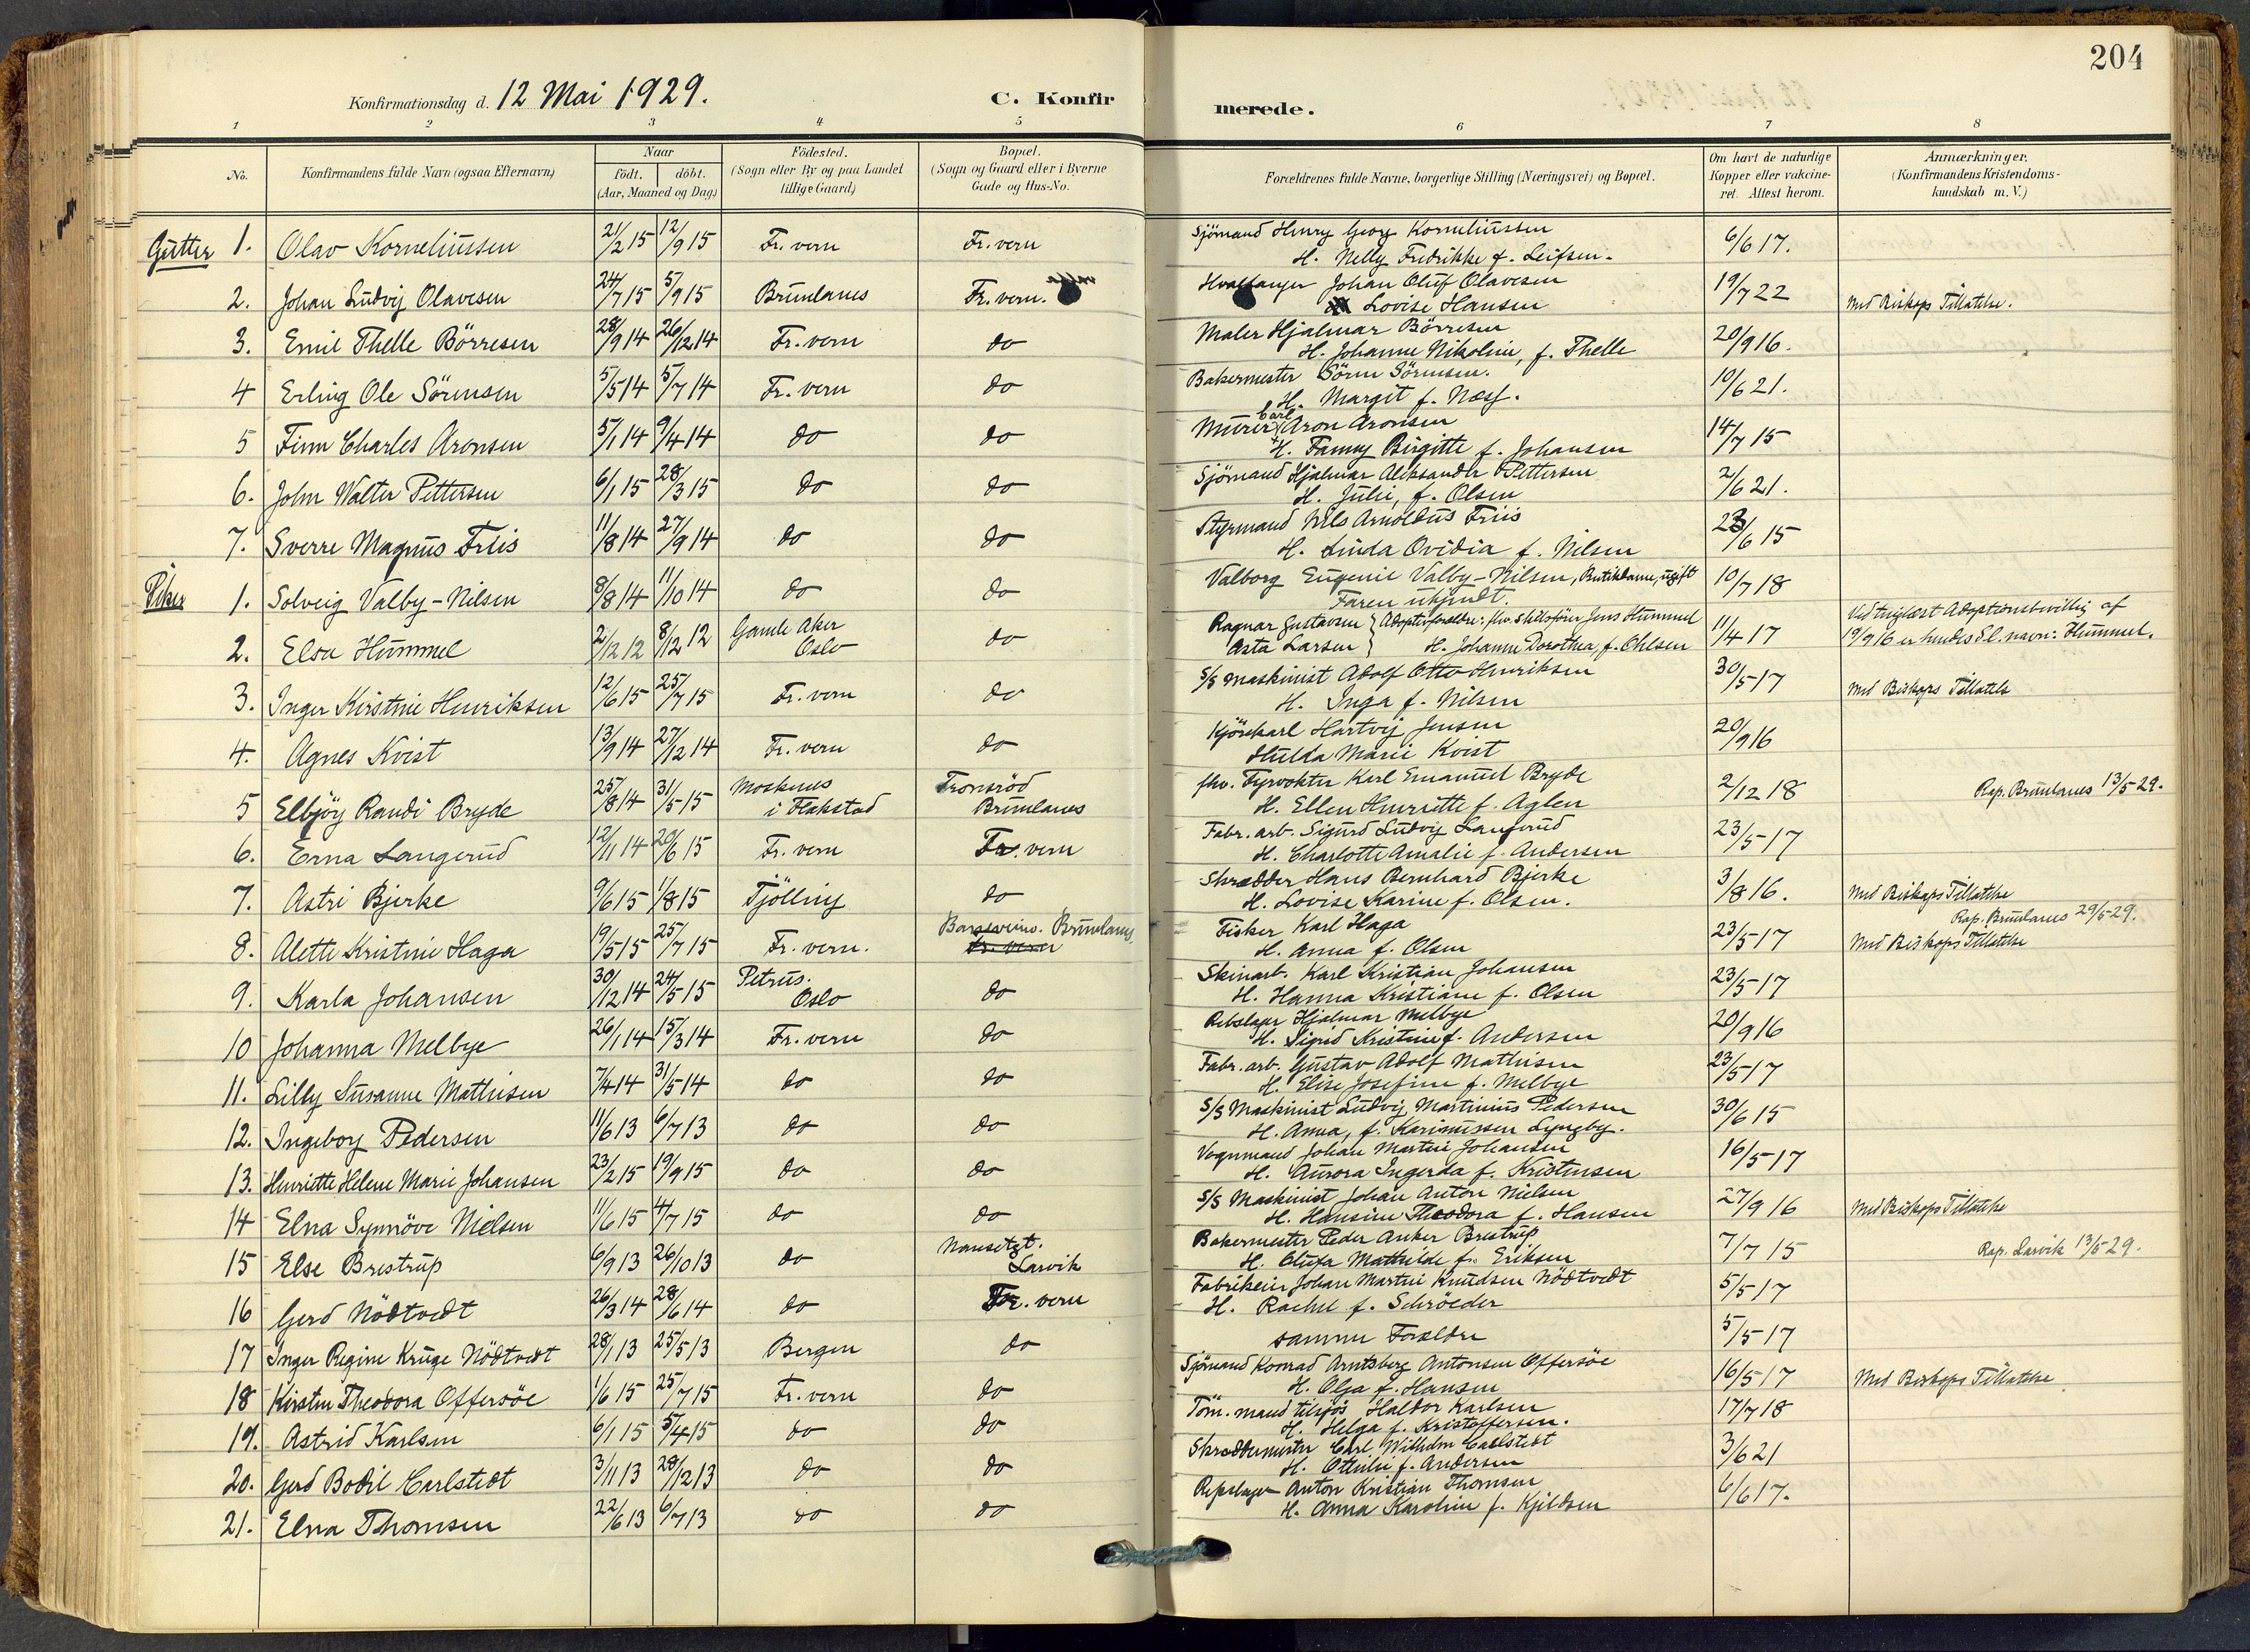 204
Konfirmationsdag d. 12 Mai 1929. C. Konfir merede.
1 2 3 4 5 6 7 8
No. Konfirmandens fulde Navn (ogsaa Efternavn) Naar födt. döbt. (Aar, Maaned og Dag) Födested. (Sogn eller By og paa Landet tillige Gaard) Bopæl. (Sogn og Gaard eller i Byerne Gade og Hus-No. Forældrenes fulde Navne, borgerlige Stilling (Næringsvei) og Bopæl. Om havt de naturlige Kopper eller vakcineret. Attest herom. Anmærkninger. (Konfirmandens Kristendomskundskab m. V.)
Gutter 1. Olav Korneliussen 21/2 15 12/9 15 Fr. vern Fr. vern Sjömand Henry Georg Korneliussen 6/6 17.
H. Nelly Fredrikke f. Leifsen.
2. Johan Ludvig Olavesen 24/7 15 5/9 15 Brunlanes Fr. vern. Hvalfanger Johan Oluf Olavesen 19/7 22 Med Biskops Tillatelse.
Lovise Hansen
3. Emil Thelle Börresen 28/9 14 26/12 14 Fr. vern do Maler Hjalmar Börresen 20/9 16.
H. Johanne Nikoline, f. Thelle
4 Erling Ole Sörensen 5/5 14 5/7 14 Fr. vern do Bakermester Sören Sörensen. 10/6 21.
H. Margit f. Næss.
5 Finn Charles Aronsen 5/1 14 9/4 14 do do Murer Carl Aron Aronsen 14/7 15
H. Fanny Birgitte f. Johansen
6. John Walter Pettersen 6/1 15 28/3 15 do do Sjömand Hjalmar Aleksander Pettersen 2/6 21.
H. Julie, f. Olsen
7. Sverre Magnus Friis 11/8 14 27/9 14 do do Styrmand Nils Arnoldus Friis 23/6 15
H. Linda Ovidia f. Nilsen
Piker 1. Solveig Valby-Nilsen 8/8 14 11/10 14 do do Valborg Eugenie Valby-Nilsen, Butikdame, ugift 10/7 18
Faren ukjendt.
2. Elsa Hummel 2/12 12 8/12 12 Gamle Aker Oslo do Ragnar Gustavsen } Adoptivforældre: fhv. Skibsfører Jens Hummel 11/4 17 Ved tinglæst Adoptionsbevillig af
Asta Larsen } H. Johanne Dorothea, f. Ohlsen 19/9 16 er hendes Sl. navn: Hummel.
3. Inger Kirstine Henriksen 12/6 15 25/7 15 Fr. vern do S/S Maskinist Adolf Otto Henriksen 30/5 17 Med Biskops Tillatels
H. Inga f. Nilsen
4. Agnes Kvist 13/9 14 27/12 14 Fr. vern do Kjörekarl Hartvig Jensen 20/9 16
Hulda Marie Kvist
5 Elbjög Randi Bryde 25/8 14 31/5 15 Moskenes i Flakstad Tronsröd Brunlanes fhv. Fyrvokter Karl Emanuel Bryde 2/12 18 Rap. Brunlanes 13/5 29.
H. Ellen Henriette f. Aglen
6. Erna Langerud 12/11 14 20/6 15 Fr. vern Fr. vern Fabr. arb. Sigurd Ludvig Langerud 23/5 17
H. Charlotte Amalie f. Andersen
7. Astri Bjerke 9/6 15 1/8 15 Tjölling do Skrædder Hans Bernhard Bjerke 3/8 16. Med Biskops Tillatelse
H. Lovise Karine f. Olsen.
8. Alette Kristine Haga 19/5 15 25/7 15 Fr. vern. Brunlanes Fr. vern Fisker Karl Haga 23/5 17 Rap. Brunlanes 29/5 29.
H. Anna f. Olsen Med Biskops Tillatelse
9. Karla Johansen 30/12 14 24/5 15 Petrus. Oslo do Skinarb. Karl Kristian Johansen 23/5 17
H. Hanna Kristiane f. Olsen
10 Johanna Melbye 26/1 14 15/3 14 Fr. vern do Rebslager Hjalmar Melbye 20/9 16
H. Sigrid Kristine f. Andersen
11. Lilly Susanne Mathisen 7/4 14 31/5 14 do do Fabr. arb. Gustav Adolf Mathisen 23/5 17
H. Elise Josefine f. Melbye
12. Ingeborg Pedersen 11/6 13 6/7 13 do do S/S Maskinist Ludvig Martinius Pedersen 30/6 15
H. Anna, f. Karinussen Lyngby.
13. Henriette Helene Marie Johansen 23/2 15 19/9 15 do do Vognmand Johan Martin Johansen 16/5 17
H. Aurora Ingerda f. Kristensen
14 Elna Synnöve Nielsen 11/6 15 4/7 15 do do S/S Maskinist Johan Anton Nielsen 27/9 16 Med Biskops Tillatelse
H. Hansine Theodora f. Hansen
15 Else Brestrup 6/9 13 26/10 13 do Nansetgt. Larvik Bakermester Peder Anker Brestrup 7/7 15 Rap. Larvik 13/5 29.
H. Olufa Mathilde f. Eriksen
16 Gerd Nödtvedt 26/3 14 28/6 14 do Fr. vern Fabrikeier Johan Martin Knudsen Nödtvedt 5/5 17
H. Rachel f. Schröeder
17 Inger Regine Kruge Nödtvedt 28/1 13 25/5 13 Bergen do samme Forældre 5/5 17
18 Kirsten Theodora Offersöe 1/6 15 25/7 15 Fr. vern do Sjömand Konrad Arntsberg Antonsen Offersöe 16/5 17 Med Biskops Tillatelse
H. Olga f. Hansen
19. Astrid Karlsen 6/1 15 5/4 15 do do Töm. mand tilsjös Haldor Karlsen 17/7 18
H. Helga f. Kristoffersen.
20. Gerd Bodil Carlstedt 3/11 13 28/12 13 do do Skreddermester Carl Wilhelm Carlstedt 3/6 21
H. Ottilie f. Andersen
21. Elna Thomsen 22/6 13 6/7 13 do do Repslager Anton Kristian Thomsen 6/6 17.
H. Anna Karoline f. Kjeldsen